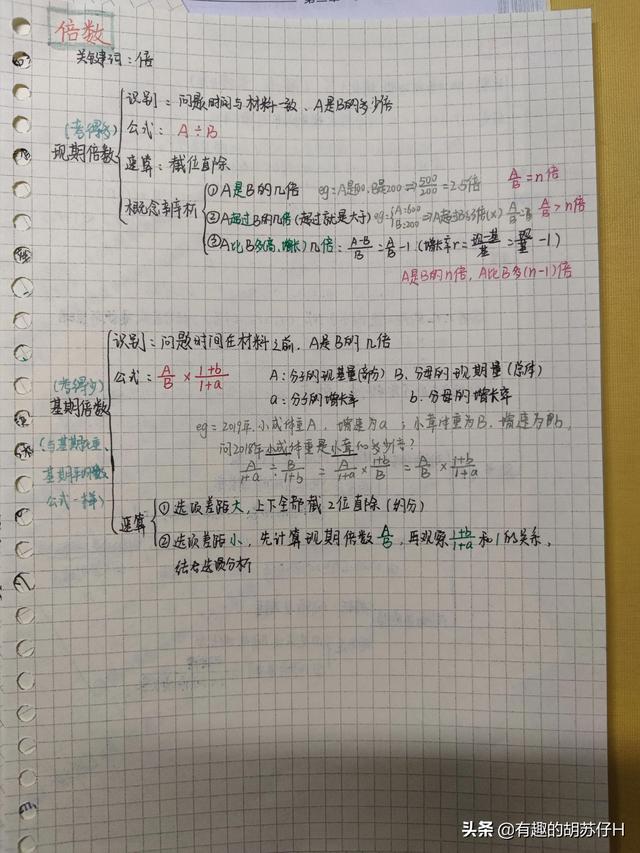 倍数
关键词：倍
(考得多)
现期倍数
识别：问题时间与材料一致、A是B的多少倍
公式：A÷B
速算：截位直除
概念辨析
①A是B的几倍 eg=A是500、B是200⇒500/200=2.5倍 A/B=n倍
②A超过B的几倍(超过就是大于) eg={A=600 B=200 A/B A/B>n倍
③A比B多(高、增长)几倍：(A-B)/B=A/B-1 (增长率r=(现-基)/基=现/基-1)
A是B的n倍，A比B多(n-1)倍
(考得少)
基期倍数
(与基期比重、
基期平均数
公式一样)
识别：问题时间在材料之前、A是B的几倍
公式：A/B×(1+b)/(1+a) A：分子的现期量(部分) B、分母的现期量(总体)
a：分子的增长率 b、分母的增长率
eg=2019年、小成体重A，增速为a；小茸体重为B、增速为b，
问2018年小成体重是小茸的多少倍？
A/(1+a)÷B/(1+b)=A/(1+a)×(1+b)/B=A/B×(1+b)/(1+a)
速算
①选项差距大，上下全部截2位直除(约分)
②选项差距小，先计算现期倍数A/B，再观察(1+b)/(1+a)和1的关系，
结合选项分析
头条 @有趣的胡苏仔H